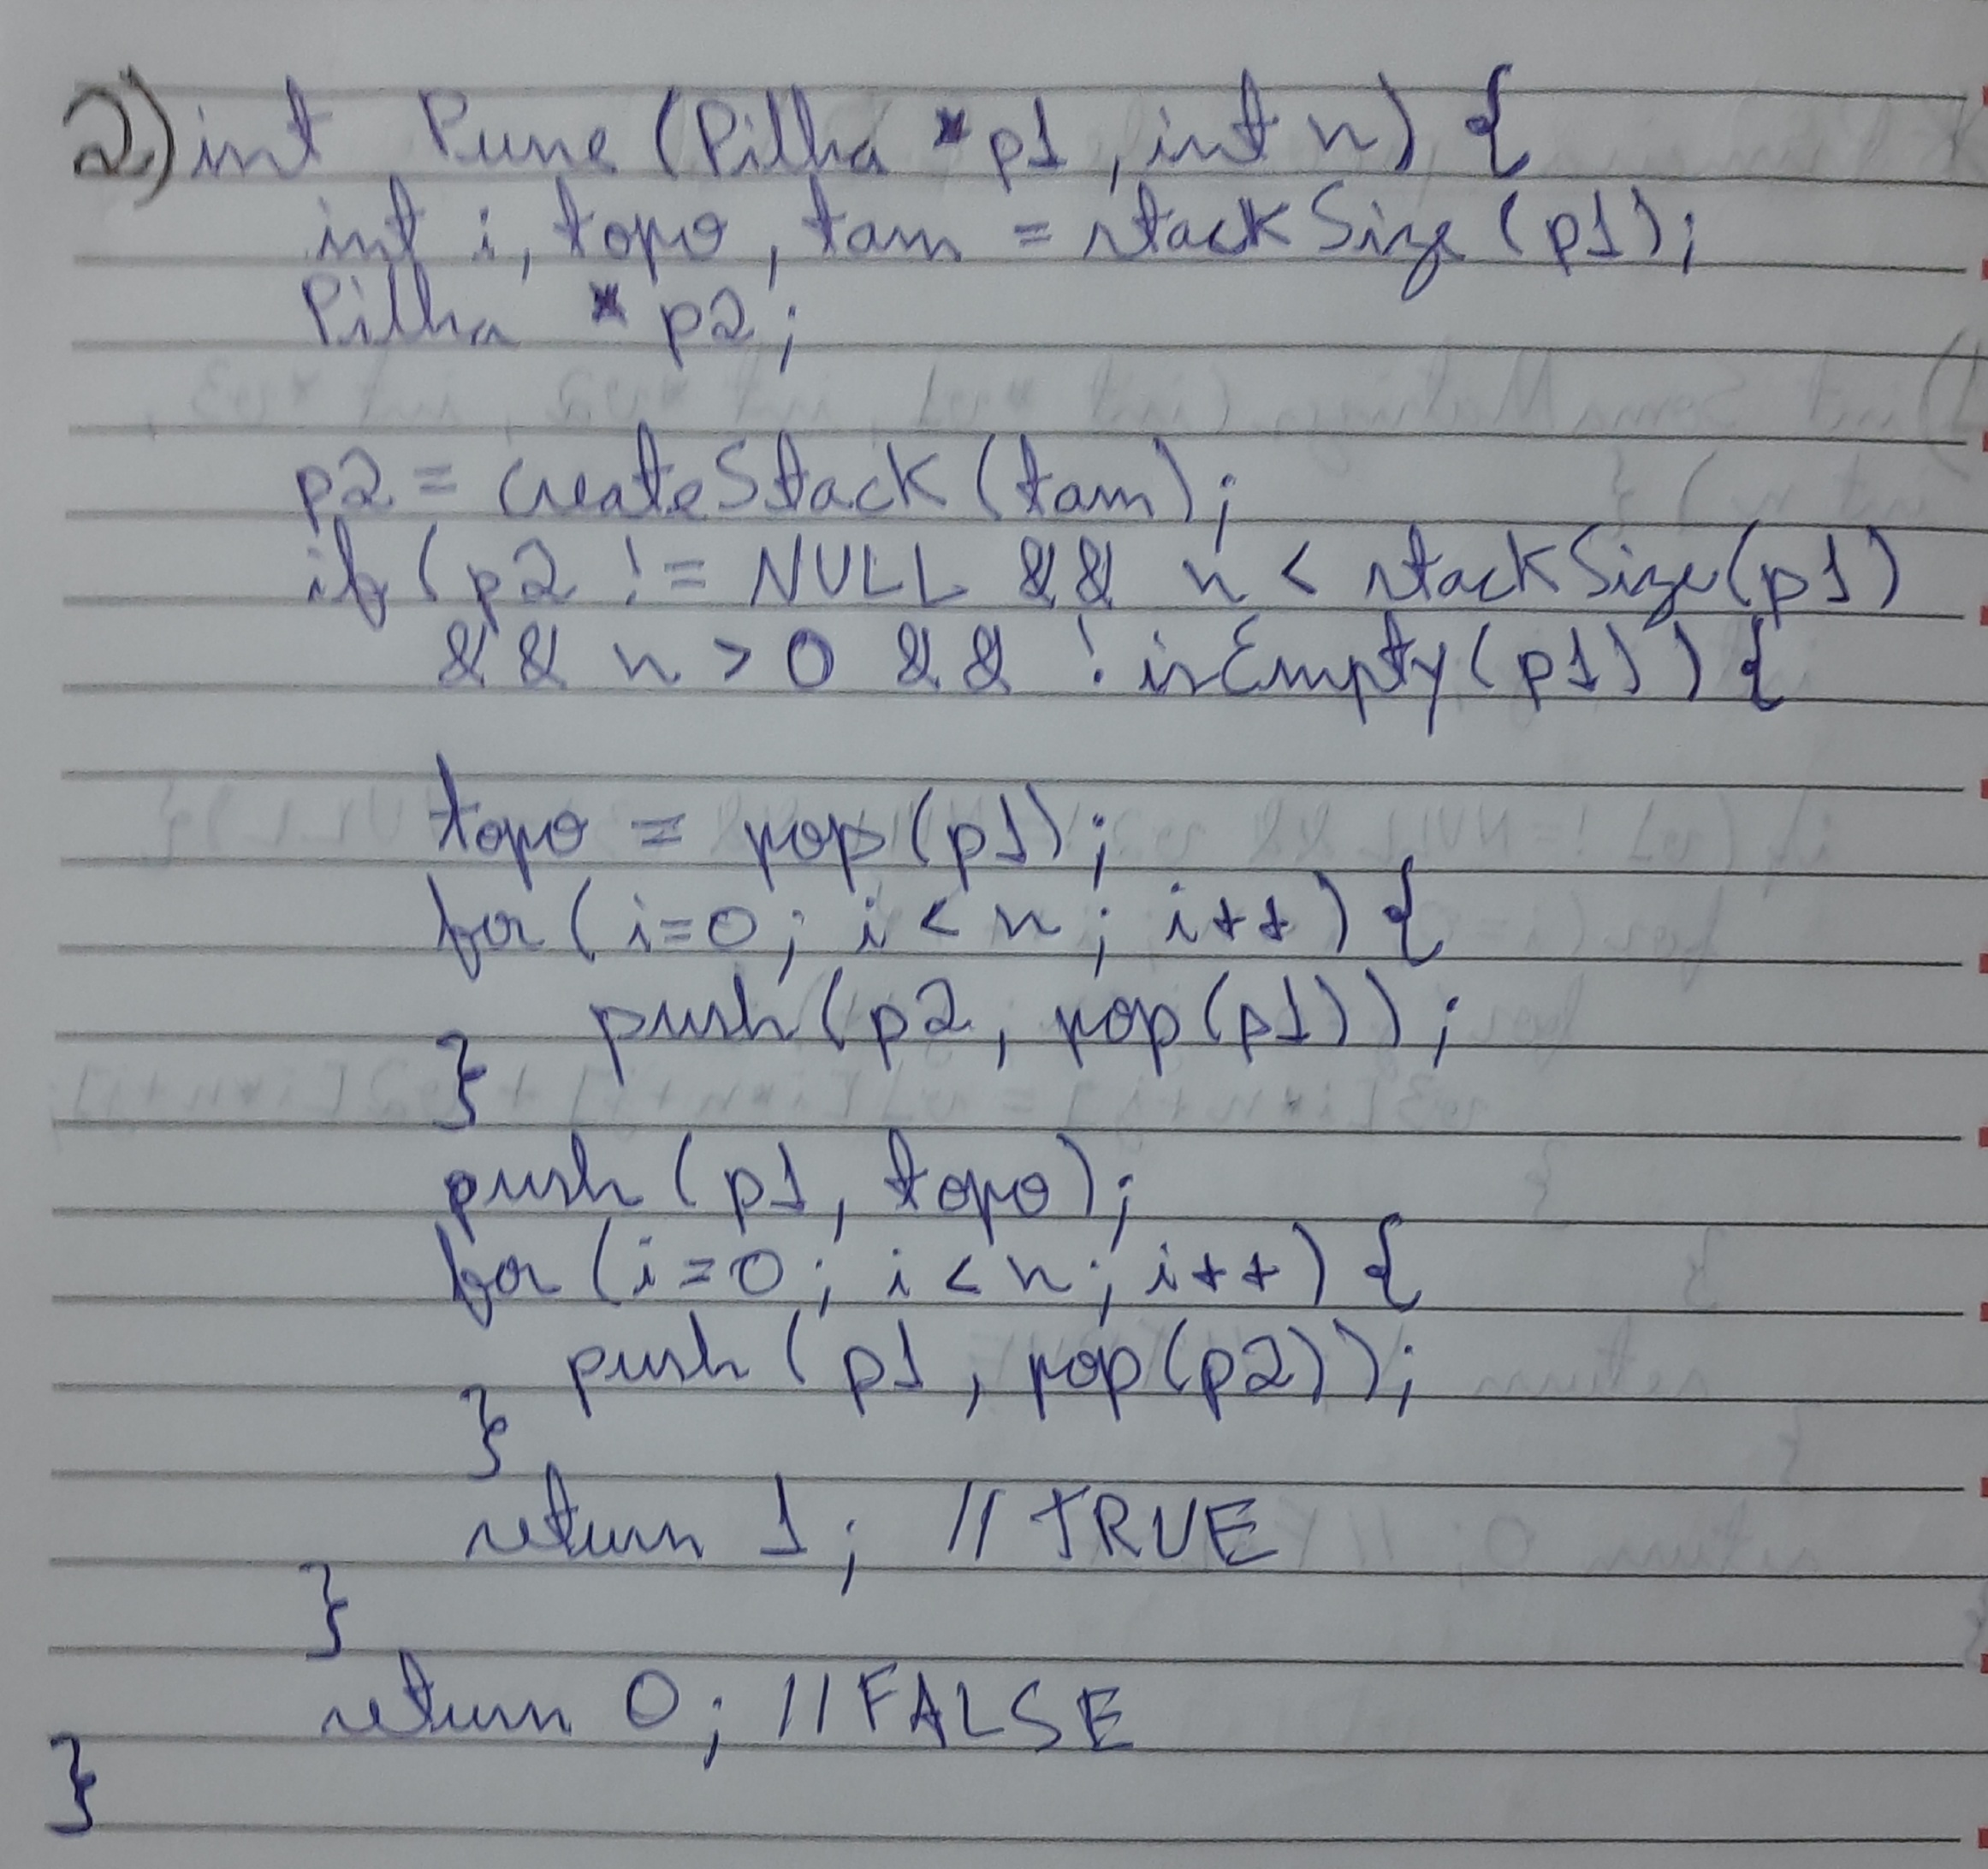 2) int Pune (Pilha *p1, int n) {
int i, topo, tam = stackSize (p1);
Pilha * p2;
p2 = createStack (tam);
if (p2 != NULL && n < stackSize(p1)
&& n > 0 && !isEmpty(p1)) {
topo = pop (p1);
for (i=0; i < n; i++) {
push (p2, pop (p1));
}
push (p1, topo);
for (i=0; i < n; i++) {
push (p1, pop (p2));
}
return 1; // TRUE
}
return 0; // FALSE
}